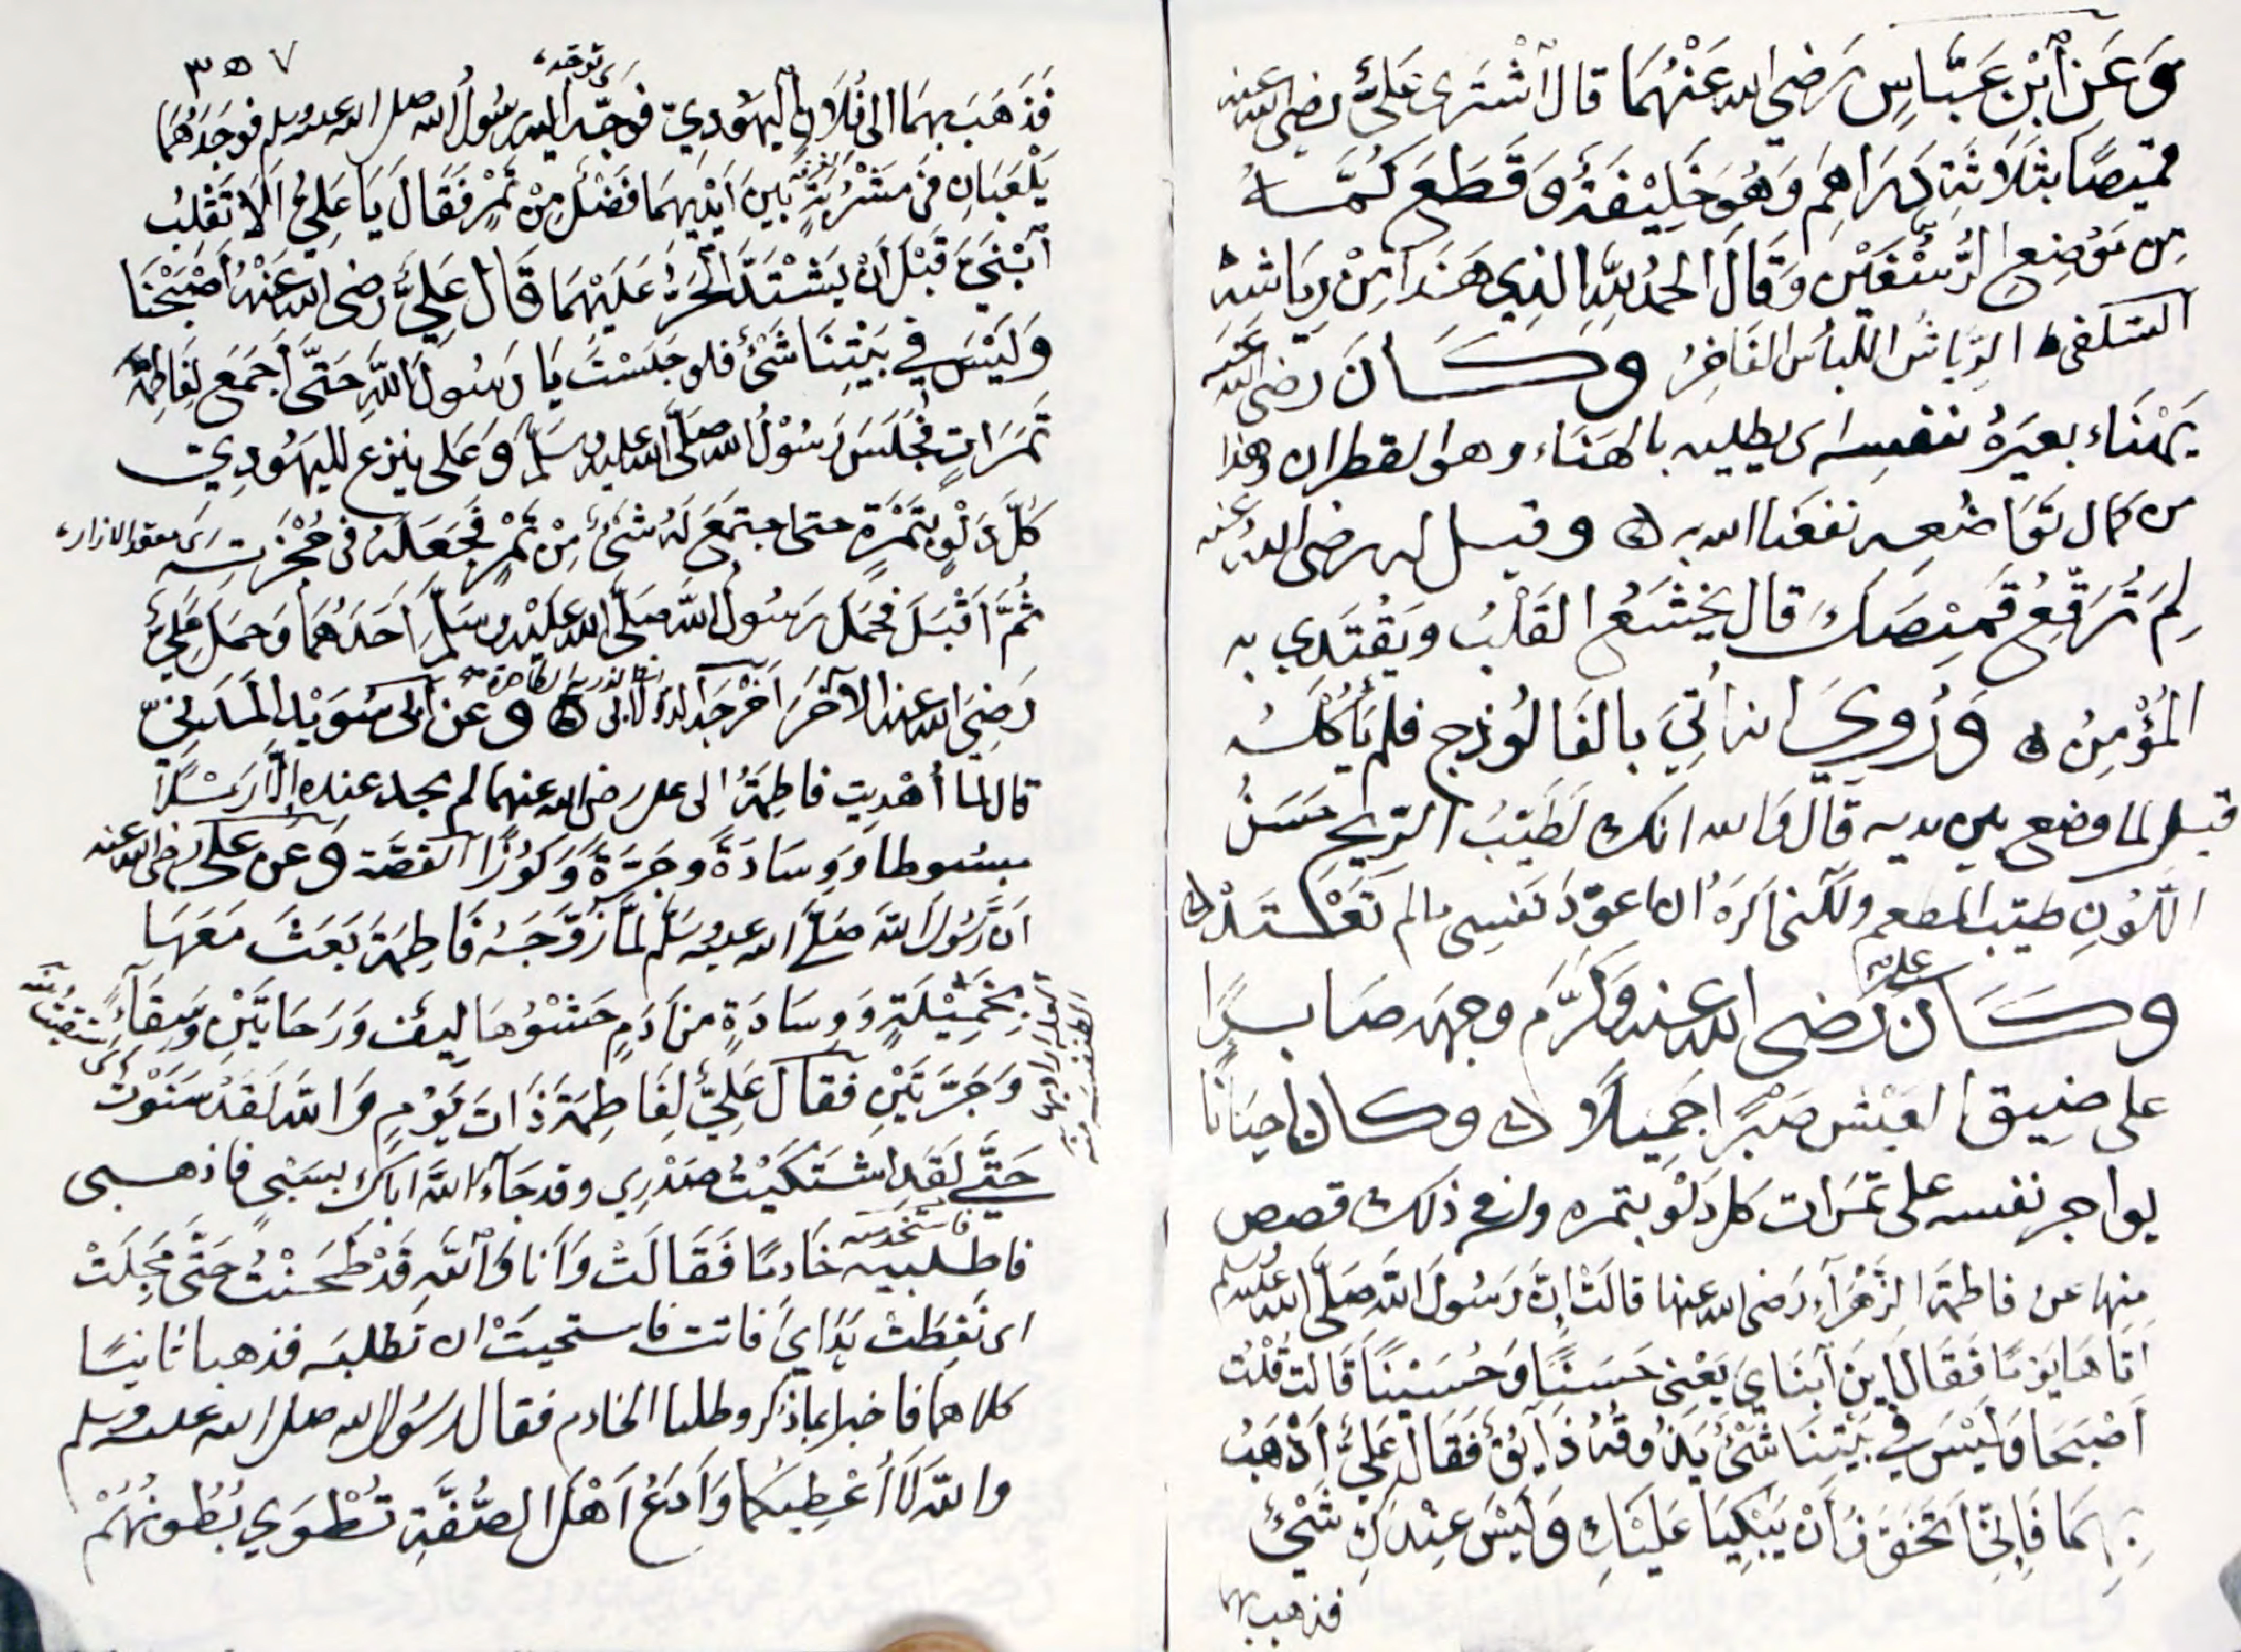 وَعَنِ ٱبْنِ عَبَّاسٍ رَضِيَ الله عَنْهُمَا قال ٱشْتَرَى عَلِيٌّ رضي الله عنه
قميصًا بثَلَاثَةِ دَرَاهِمَ وَهُوَ خَلِيْفَةٌ وَقَطَعَ كُمَّهُ
مِن مَوْضِعِ الرُّسْغَيْنِ وَقَالَ الحمدُ للهِ الذِي هَذَا مِنْ رِيَاشِهِ
الرِّيَاشُ اللِّبَاسُ الفَاخِرُ وكَانَ رَضِيَ الله عنه
يَهْنَاء بعيَرهُ بنفسِه اى يطليه بالهَنَاء وهو القطران وهذا
من كمال تَوَاضُعِه نفعَنا الله به ه وقيل له رضي الله عنه
لِمَ تُرَقِّعُ قَمِيْصَكَ قال يَخْشَعُ القَلْبُ ويَقْتَدِي به
المُؤْمِنُ ه وَرُوِيَ انه أُتِيَ بالفَالُوذج فلم يَأكُلْهُ
قيل لما وضع بين يديه قَالَ وَالله انك لَطَيِّبُ الرِّيحِ حَسَنُ
اللَّوْنِ طيّب المطعم ولكنى اكرَهُ ان اعوّدَ نَفسِى مالم تَعْتَدْ ه
وكَانَ عليٌّ رَضي الله عنه وَكَرَّمَ وجهه صَابِرًا
على ضيق العَيْش صَبْرًا جَمِيلًا ه وكان احيَانًا
يواجر نفسه على تَمَرات كل دَلْوٍ بتمره وله في ذلك قصص
مِنها عن فاطمة الزَّهْرَآءِ رَضي الله عنها قالَتْ إنَّ رَسُولَ اللَّهِ صَلَّى الله عليه وسلم
اتَاهَا يَوْمًا فَقَالَ اَيْنَ ٱبْنَايَ يَعْنِى حَسَنًا وَحُسَيْنًا قَالَت قُلْتُ
اَصْبَحَا وَلَيْسَ فِي بَيْتِنَا شَيْءٌ يَذُوقُهُ ذَآئِقٌ فَقَالَ عَلِيٌّ اَذْهَبُ
بِهِمَا فَإنِّى اَتَخَوَّفُ أنْ يَبْكِيَا عَلَيْكِ وَلَيْسَ عِنْدَكِ شَيْءٌ
فذهب بهما
٣٥٧
اى توجه
فَذَهَبَ بهمَا الى فُلَانٍ اليَهُودِيّ فوجّه اليه رسُولُ الله صلى الله عليه وسلم فوجَدَهُمَا
يَلْعَبَانِ فى مَشْرُبَةٍ بَيْنَ اَيْدِيهِمَا فَضْلٌ مِنْ تَمْرٍ فَقَالَ يَا عَلِيُّ اَلَا تَقْلِبُ
ٱبْنَيَّ قَبْلَ أنْ يَشْتَدَّ الحَرُّ عَلَيْهِمَا قَالَ عَلِيٌّ رضى الله عَنْهُ أصْبَحْنَا
وَلَيْسَ فِي بَيْتِنَا شَيْءٌ فلو جَلَسْتَ يَا رَسُولَ اللَّهِ حَتَّى اَجمَعَ لِفَاطِمَةَ
تَمَرَاتٍ فَجَلَسَ رَسُوْلُ الله صَلَّى الله عليه وسَلَّمَ وَعَلى ينزع لليهُودِيّ
كُلَّ دَلْوٍ بِتَمْرَةٍ حتى اجتمَعَ لَهُ شَيْءٌ مِنْ تَمْرٍ فَجَعَلَهُ فى حُجْزَتِه اى معقد الازار
ثُمَّ اَقْبَلَ فَحَمَلَ رَسُولُ اللّه صَلَّى الله عَلَيْهِ وسَلَّمَ اَحَدَهُمَا وَحَمَلَ عَلِيٌّ
رَضِيَ الله عنه الآخَرَ اَخْرَجَه الدولابى ه وعن اَبى سُوَيْد المَدَنِيّ
قال لما أُهْدِيت فاطِمَةُ الى على رضى الله عنهما لم يجد عنده إلَّا رَمْلًا
مبسُوطا وَوِسَادَةً وجَرَّةً وَكُوْزًا القصَّة وَعن علىّ رضى الله عنه
اَنَّ رَسُولَ اللَّه صَلَّى الله عليه وسَلَّم لمَّا زَوَّجَهُ فَاطِمَةَ بَعَثَ مَعَهَا
بِخَمِيْلَةٍ وَوِسَادَةٍ من اَدَمٍ حَشْوُهَا لِيفٌ وَرَحَايَيْنِ وَسِقَآءٍ
وَجَرَّتَيْنِ فقال عَلِيٌّ لِفَاطِمَةَ ذَاتَ يَوْمٍ وَاللَّهِ لَقَدْ سَنَوْتُ
حَتَّى لَقَدِ اشتَكَيْتُ صَدْرِي وقد جَآءَ اللَّهُ اَبَاكِ بسَبْيٍ فاذهبى
فاطلبيه خَادِمًا فَقَالَتْ وَاَنَا وَاللَّهِ قَدْ طَحَنْتُ حَتَّى مَجِلَتْ
اى نَفِطَتْ يَدَايَ فاتت فاستحيَتْ ان تَطلبَه فذهبا ثانيًا
كلاهما فاخبراه بما ذُكر وطلبا الخادم فقال رسُول الله صلى الله عليه وسلم
والله لَا أُعْطِيكُما وَاَدَعُ اَهْلَ الصُّفَّةِ تُطْوَي بُطُونُهُمْ